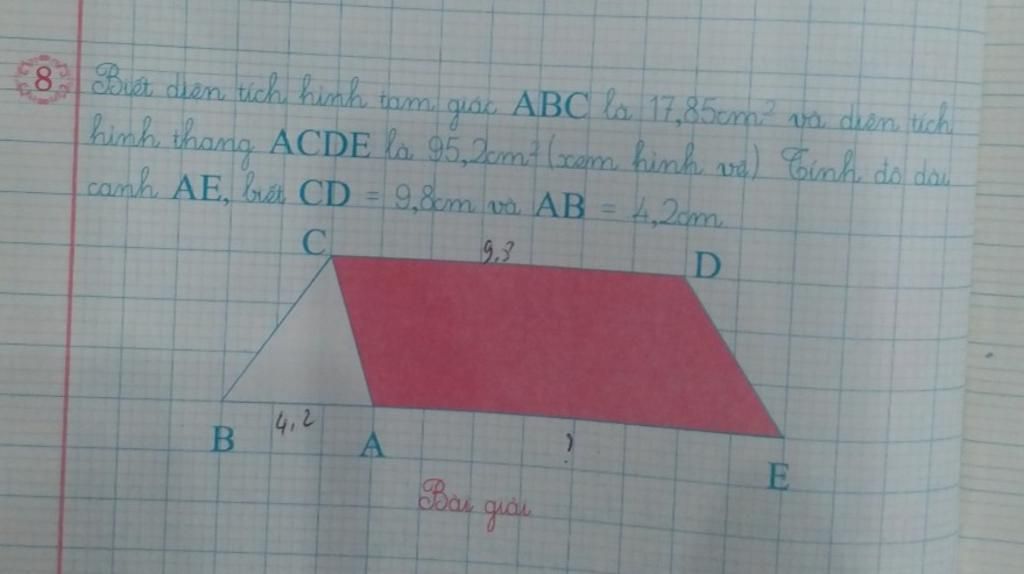 8 Biết diện tích hình tam giác ABC là 17,85cm² và diện tích
hình thang ACDE là 95,2cm² (xem hình vẽ) Tính độ dài
cạnh AE, biết CD = 9,8cm và AB = 4,2cm
C 9,3 D
B 4,2 A ? E
Bài giải